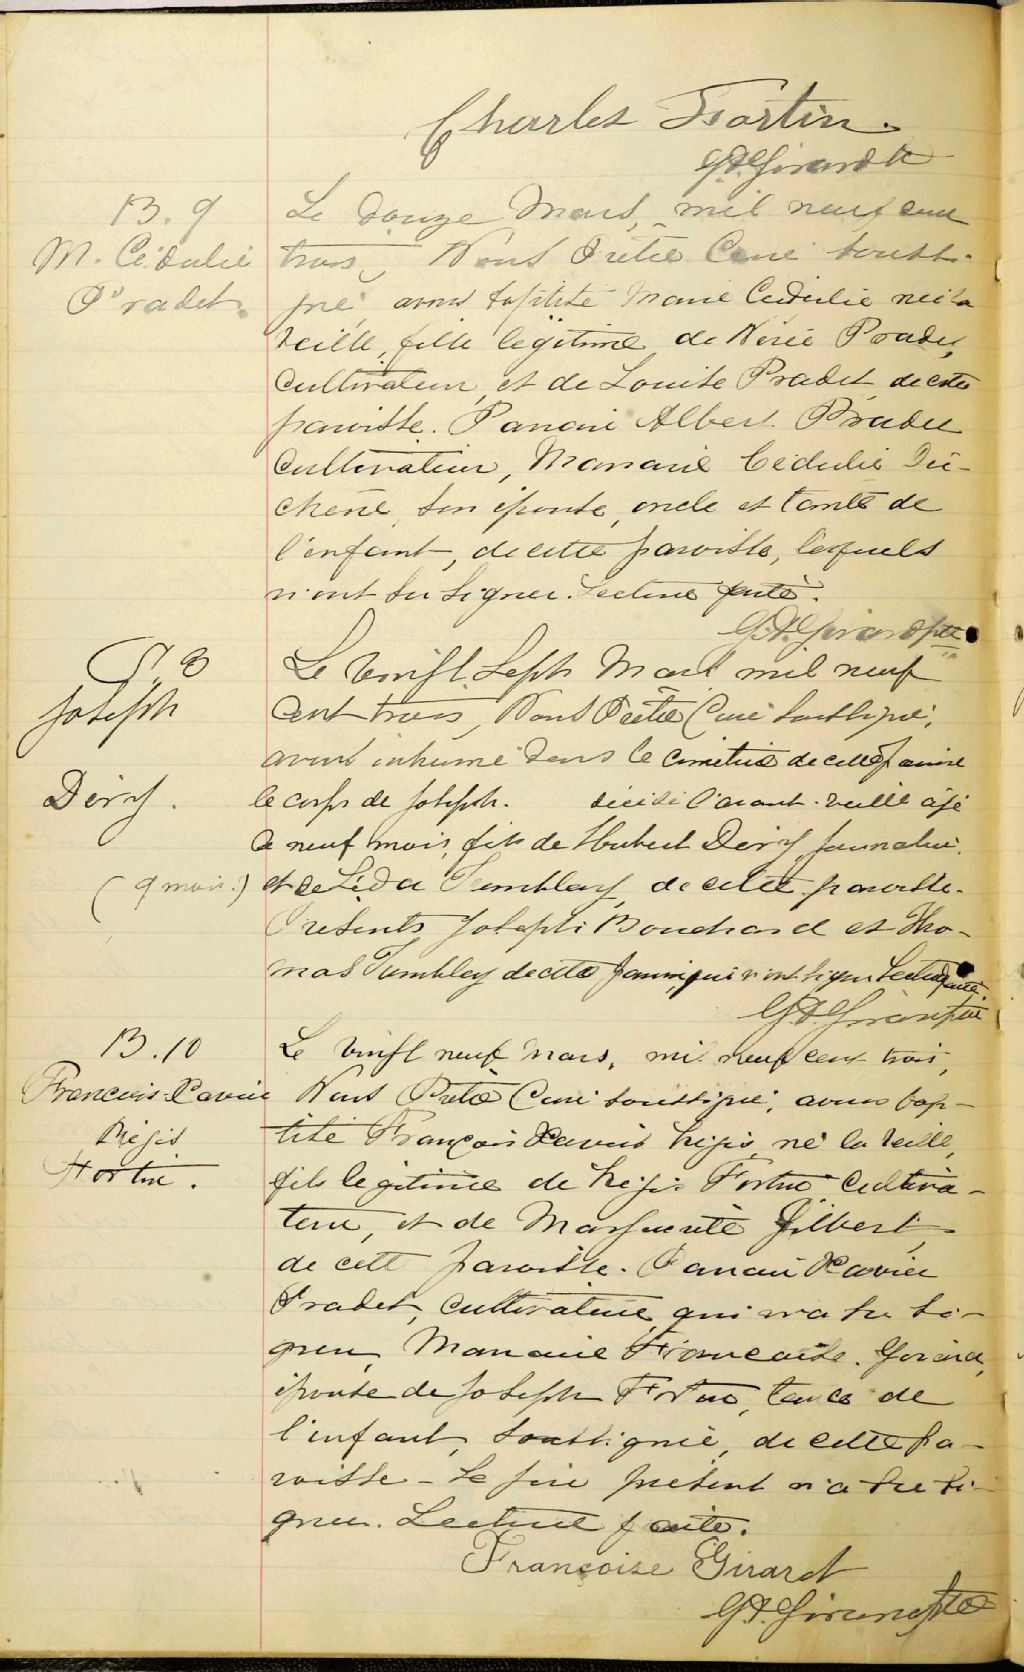 Charles Fortin.
G.A. Girard Ptr
B. 9
M. Cédulie
Pradet.
Le douze Mars, mil neuf cent
trois, Nous Prêtre Curé soussi-
gné avons baptisé Marie Cédulie née la
veille, fille légitime de Nérée Pradet,
cultivateur, et de Louise Pradet de cette
paroisse. Parrain Albert Pradet
cultivateur, Marraine Cédulie Du-
chêne, son épouse, oncle et tante de
l'enfant, de cette paroisse, lesquels
n'ont su signer. Lecture faite.
G.A. Girard ptre
S. 3
Joseph
Déry.
(9 mois.)
Le vingt sept Mars mil neuf
cent trois, Nous Prêtre Curé soussigné,
avons inhumé dans le cimetière de cette paroisse
le corps de Joseph. décédé l'avant-veille âgé
de neuf mois, fils de Hubert Déry journalier,
et de Léda Tremblay, de cette paroisse.
Présents Joseph Bouchard et Tho-
mas Tremblay de cette paroisse, qui n'ont signé. Lecture faite.
G.A. Girard ptre
B. 10
François-Xavier
Régis
Fortin.
Le vingt neuf Mars, mil neuf cent trois,
Nous Prêtre Curé soussigné, avons bap-
tisé François Xavier Régis, né la veille,
fils légitime de Régis Fortin cultiva-
teur, et de Marguerite Gilbert,
de cette paroisse. Parrain Xavier
Pradet, cultivateur, qui n'a su si-
gner, Marraine Françoise Girard,
épouse de Joseph Fortin, de
l'enfant, soussignée, de cette pa-
roisse - Le père présent n'a su si-
gner. Lecture faite.
Françoise Girard
G.A. Girard ptre